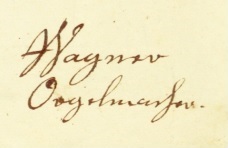 Wagner
Orgelmacher.